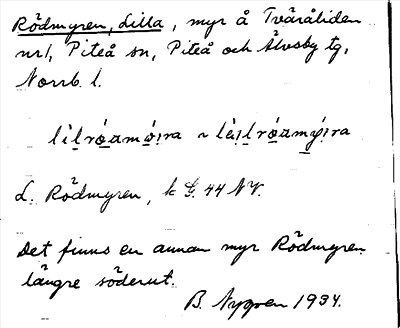 Rödmyren, Lilla, myr å Tväråliden
nr 1, Piteå sn, Piteå och Älvsby tg,
Norrb. l.
L. Rödmyren, k G. 44 NV.
Det finns en annan myr Rödmyren
längre söderut.
B. Nygren 1934.